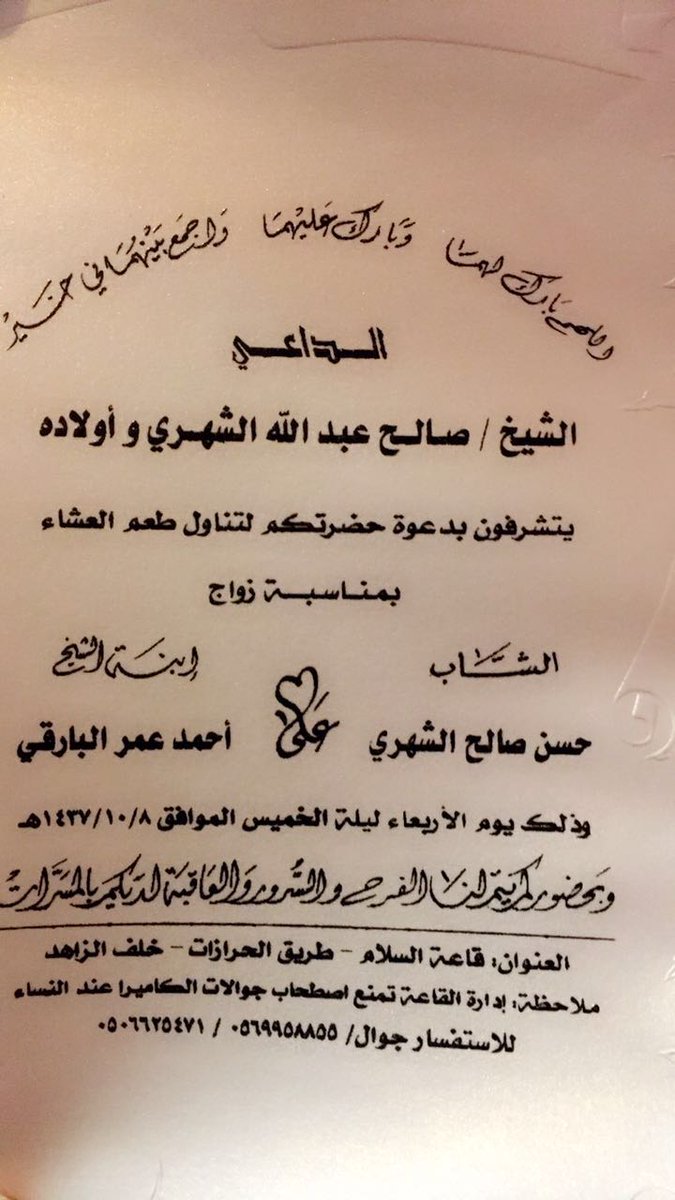 اللهم بارك لهما وبارك عليهما واجمع بينهما في خير
الداعي
الشيخ / صالح عبد الله الشهري و أولاده
يتشرفون بدعوة حضرتكم لتناول طعم العشاء
بمناسبة زواج
الشاب إبنة الشيخ
حسن صالح الشهري على أحمد عمر البارقي
وذلك يوم الأربعاء ليلة الخميس الموافق ١٤٣٧/١٠/٨هـ
وبحضوركم يتم لنا الفرح والسرور والعاقبة لديكم بالمسرات
العنوان: قاعة السلام - طريق الحرازات - خلف الزاهد
ملاحظة: إدارة القاعة تمنع اصطحاب جوالات الكاميرا عند النساء
للاستفسار جوال/ ٠٥٦٩٩٥٨٨٥٥ / ٠٥٠٦٦٢٥٤٧١